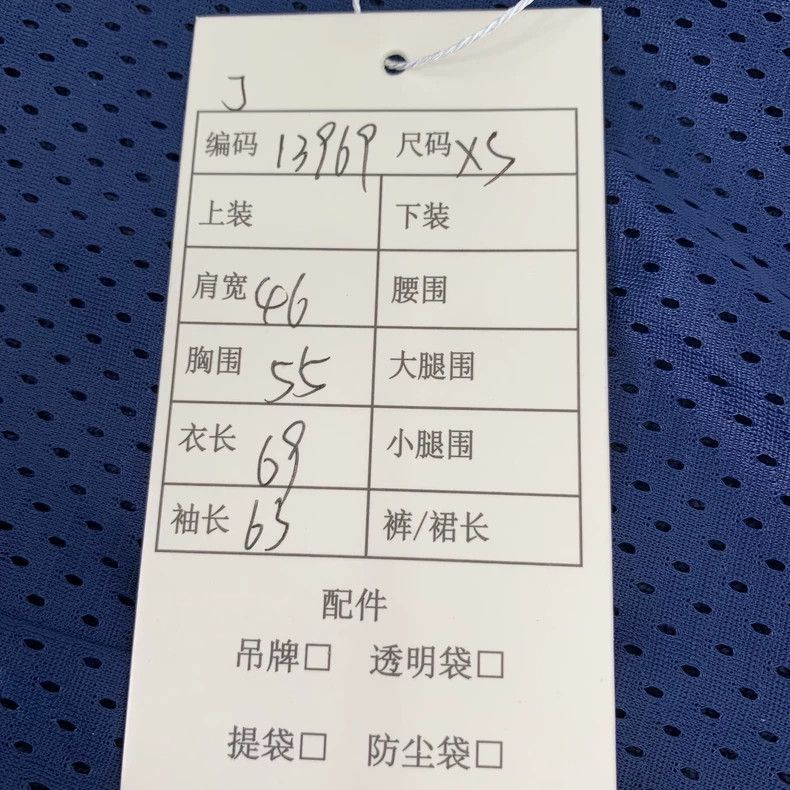 J
编码 13969 尺码 XS
上装 下装
肩宽 46 腰围
胸围 55 大腿围
衣长 69 小腿围
袖长 63 裤/裙长
配件
吊牌□ 透明袋□
提袋□ 防尘袋□